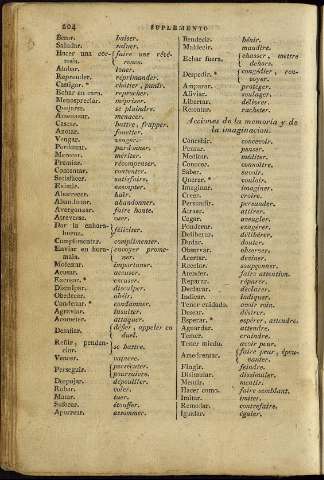 204 SUPLEMENTO
Besar. baiser.
Saludar. saluer.
Hacer una cor- faire une révé-
tesía. rence.
Alabar. louer.
Reprender. réprimander.
Castigar.* châtier, punir.
Echar en cara. reprocher.
Menospreciar. mépriser.
Quejarse. se plaindre.
Amenazar. menacer.
Cascar. battre, frapper.
Azotar. fouetter.
Vengar. venger.
Perdonar. pardonner.
Merecer. mériter.
Premiar. récompenser.
Contentar. contenter.
Satisfacer. satisfaire.
Eximir. exempter.
Aborrecer. haïr.
Abandonar. abandonner.
Avergonzar. faire honte.
Atreverse. oser.
Dar la enhora- féliciter.
buena.
Cumplimentar. complimenter.
Enviar en hora- envoyer prome-
mala. ner.
Molestar. importuner.
Acusar. accuser.
Excusar.* excuser.
Disculpar. disculper.
Obedecer. obéir.
Condenar.* condamner.
Agraviar. insulter.
Acometer. attaquer.
Desafiar. défier, appeler en
duel.
Reñir, penden- se battre.
ciar.
Vencer. vaincre.
Perseguir. persécuter,
poursuivre.
Despojar. dépouiller.
Robar. voler.
Matar. tuer.
Sufocar. étouffer.
Aporrear. assommer.
Bendecir. bénir.
Maldecir. maudire.
Echar fuera. chasser, mettre
dehors.
Despedir.* congédier, ren-
voyer.
Amparar. protéger.
Aliviar. soulager.
Libertar. délivrer.
Rescatar. racheter.
Acciones de la memoria y de
la imaginacion.
Concebir. concevoir.
Pensar. penser.
Meditar. méditer.
Conocer. connoître.
Saber. savoir.
Querer.* vouloir.
Imaginar. imaginer.
Creer. croire.
Persuadir. persuader.
Atraer. attirer.
Cargar. avouer.
Ponderar. exagérer.
Deliberar. délibérer.
Dudar. douter.
Observar. observer.
Acertar. deviner.
Recelar. soupçonner.
Atender. faire attention.
Reparar. réparer.
Declarar. déclarer.
Indicar. indiquer.
Tener cuidado. avoir soin.
Desear. désirer.
Esperar.* espérer, attendre.
Aguardar. attendre.
Temer. craindre.
Tener miedo. avoir peur.
Amedrentar. faire peur, épou-
vanter.
Fingir. feindre.
Disimular. dissimuler.
Mentir. mentir.
Hacer como. faire semblant.
Imitar. imiter.
Remedar. contrefaire.
Igualar. égaler.